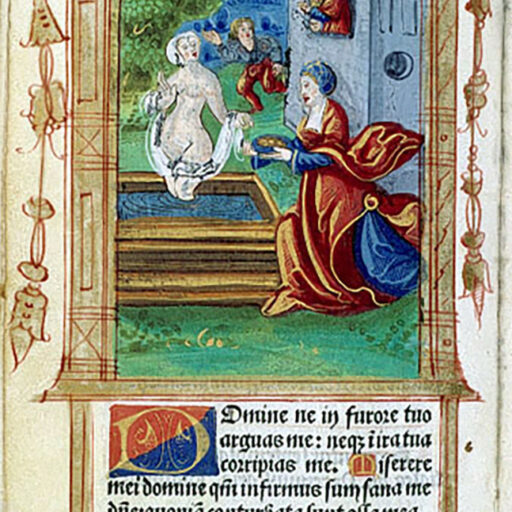 Domine ne in furore tuo
arguas me: neqȝ ĩ ira tua
corripias me. Miserere
mei domine qm̃ infirmus sum sana me